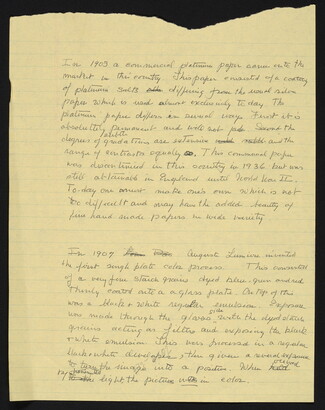 In 1903 a commercial platinum paper came into the
market in this country This paper consisted of a coating
of platinum salts differing from the usual silver
paper which is used almost exclusively to day. The
platinum paper differs in several ways. First it is
absolutely permanent and will not fade Second the
degrees of gradations are extensive and the
range of contrasts equally so. This commercial paper
was discontinued in this country in 1936 but was
still obtainable in England until World War II.
To-day one must make one's own which is not
too difficult and may have the added beauty of
fine hand made papers in wide variety
In 1907 August Lumiere invented
the first single plate color process. This consisted
of a very fine starch grains dyed blue-green and red
Thinly coated onto a glass plate. On top of this
was a black & white regular emulsion. Exposure
was made through the glass side with the dyed starch
grains acting as filters and exposing the black
& white emulsion. This was processed in a regular
black & white developer then given a second exposure
to turn the image into a positive. When
light the picture in color.